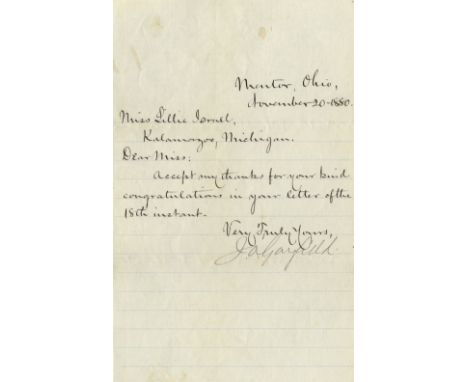 Mentor, Ohio,
November 20-1880.
Miss Lillie Israel,
Kalamazoo, Michigan.
Dear Miss:
Accept my thanks for your kind
congratulations in your letter of the
18th instant.
Very Truly Yours,
J A Garfield.